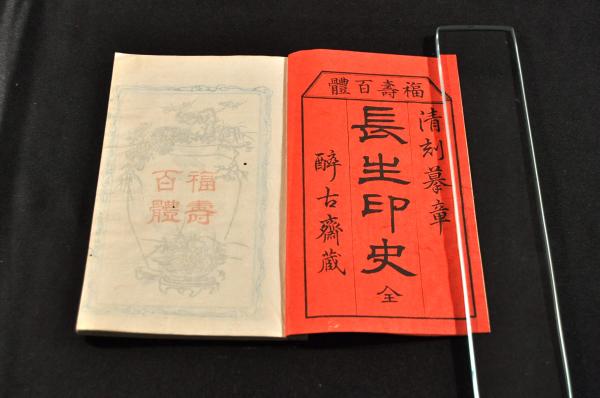 福壽百體
清刻摹章
長生印史 全
醉古齋蔵
福壽
百體